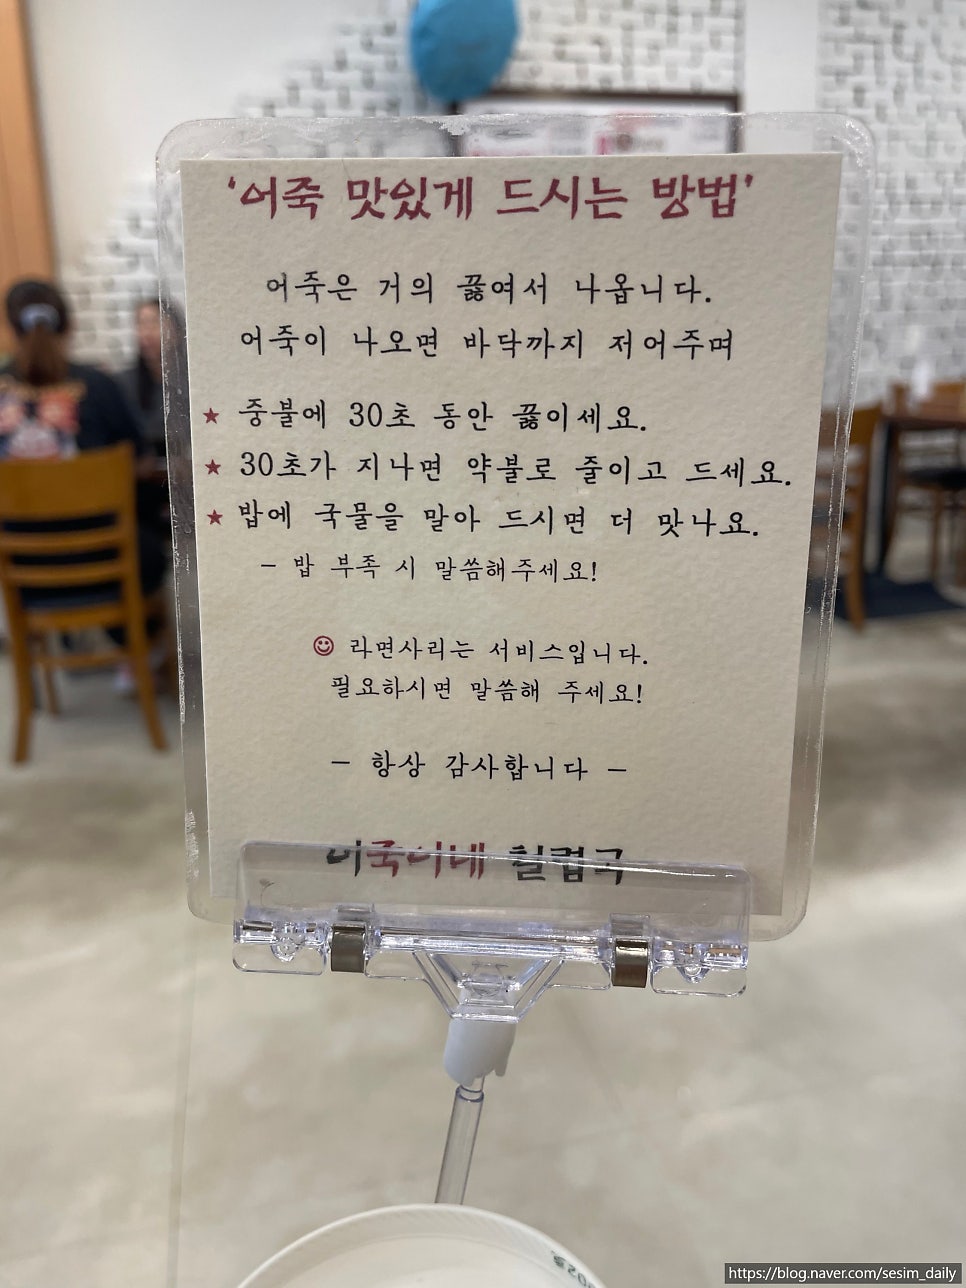 '어죽 맛있게 드시는 방법'
어죽은 거의 끓여서 나옵니다.
어죽이 나오면 바닥까지 저어주며
★ 중불에 30초 동안 끓이세요.
★ 30초가 지나면 약불로 줄이고 드세요.
★ 밥에 국물을 말아 드시면 더 맛나요.
- 밥 부족 시 말씀해주세요!
☺ 라면사리는 서비스입니다.
필요하시면 말씀해 주세요!
- 항상 감사합니다 -
어죽이네 털럽국
https://blog.naver.com/sesim_daily